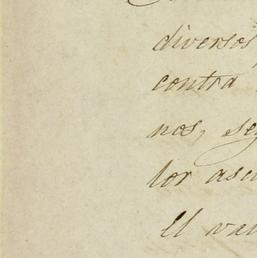 diversos
contra
nos, se
lor asc
El va